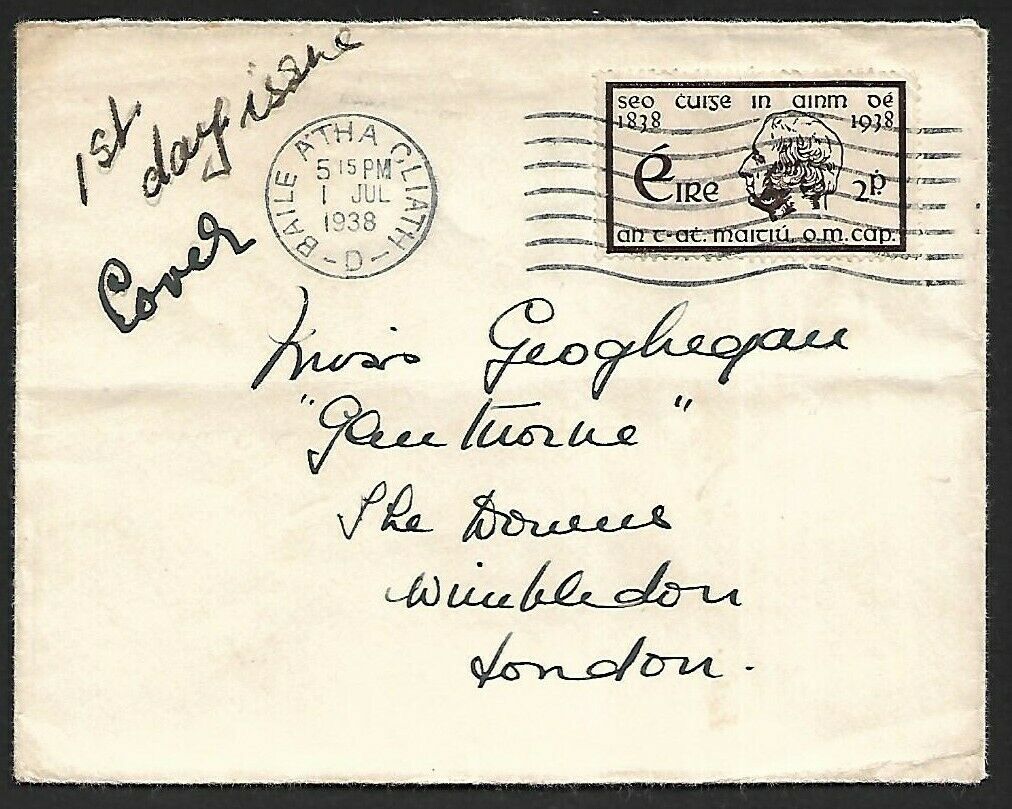 1st
day issue
Cover
BAILE ÁTHA CLIATH
5 15 PM
1 JUL
1938
-D-
seo ċuige in ainm dé
1838 1938
Éire 2ṗ
an t-at. maitiú, o.m. cap.
Miss Geoghegan
"Glenthorne"
The Downs
Wimbledon
London.